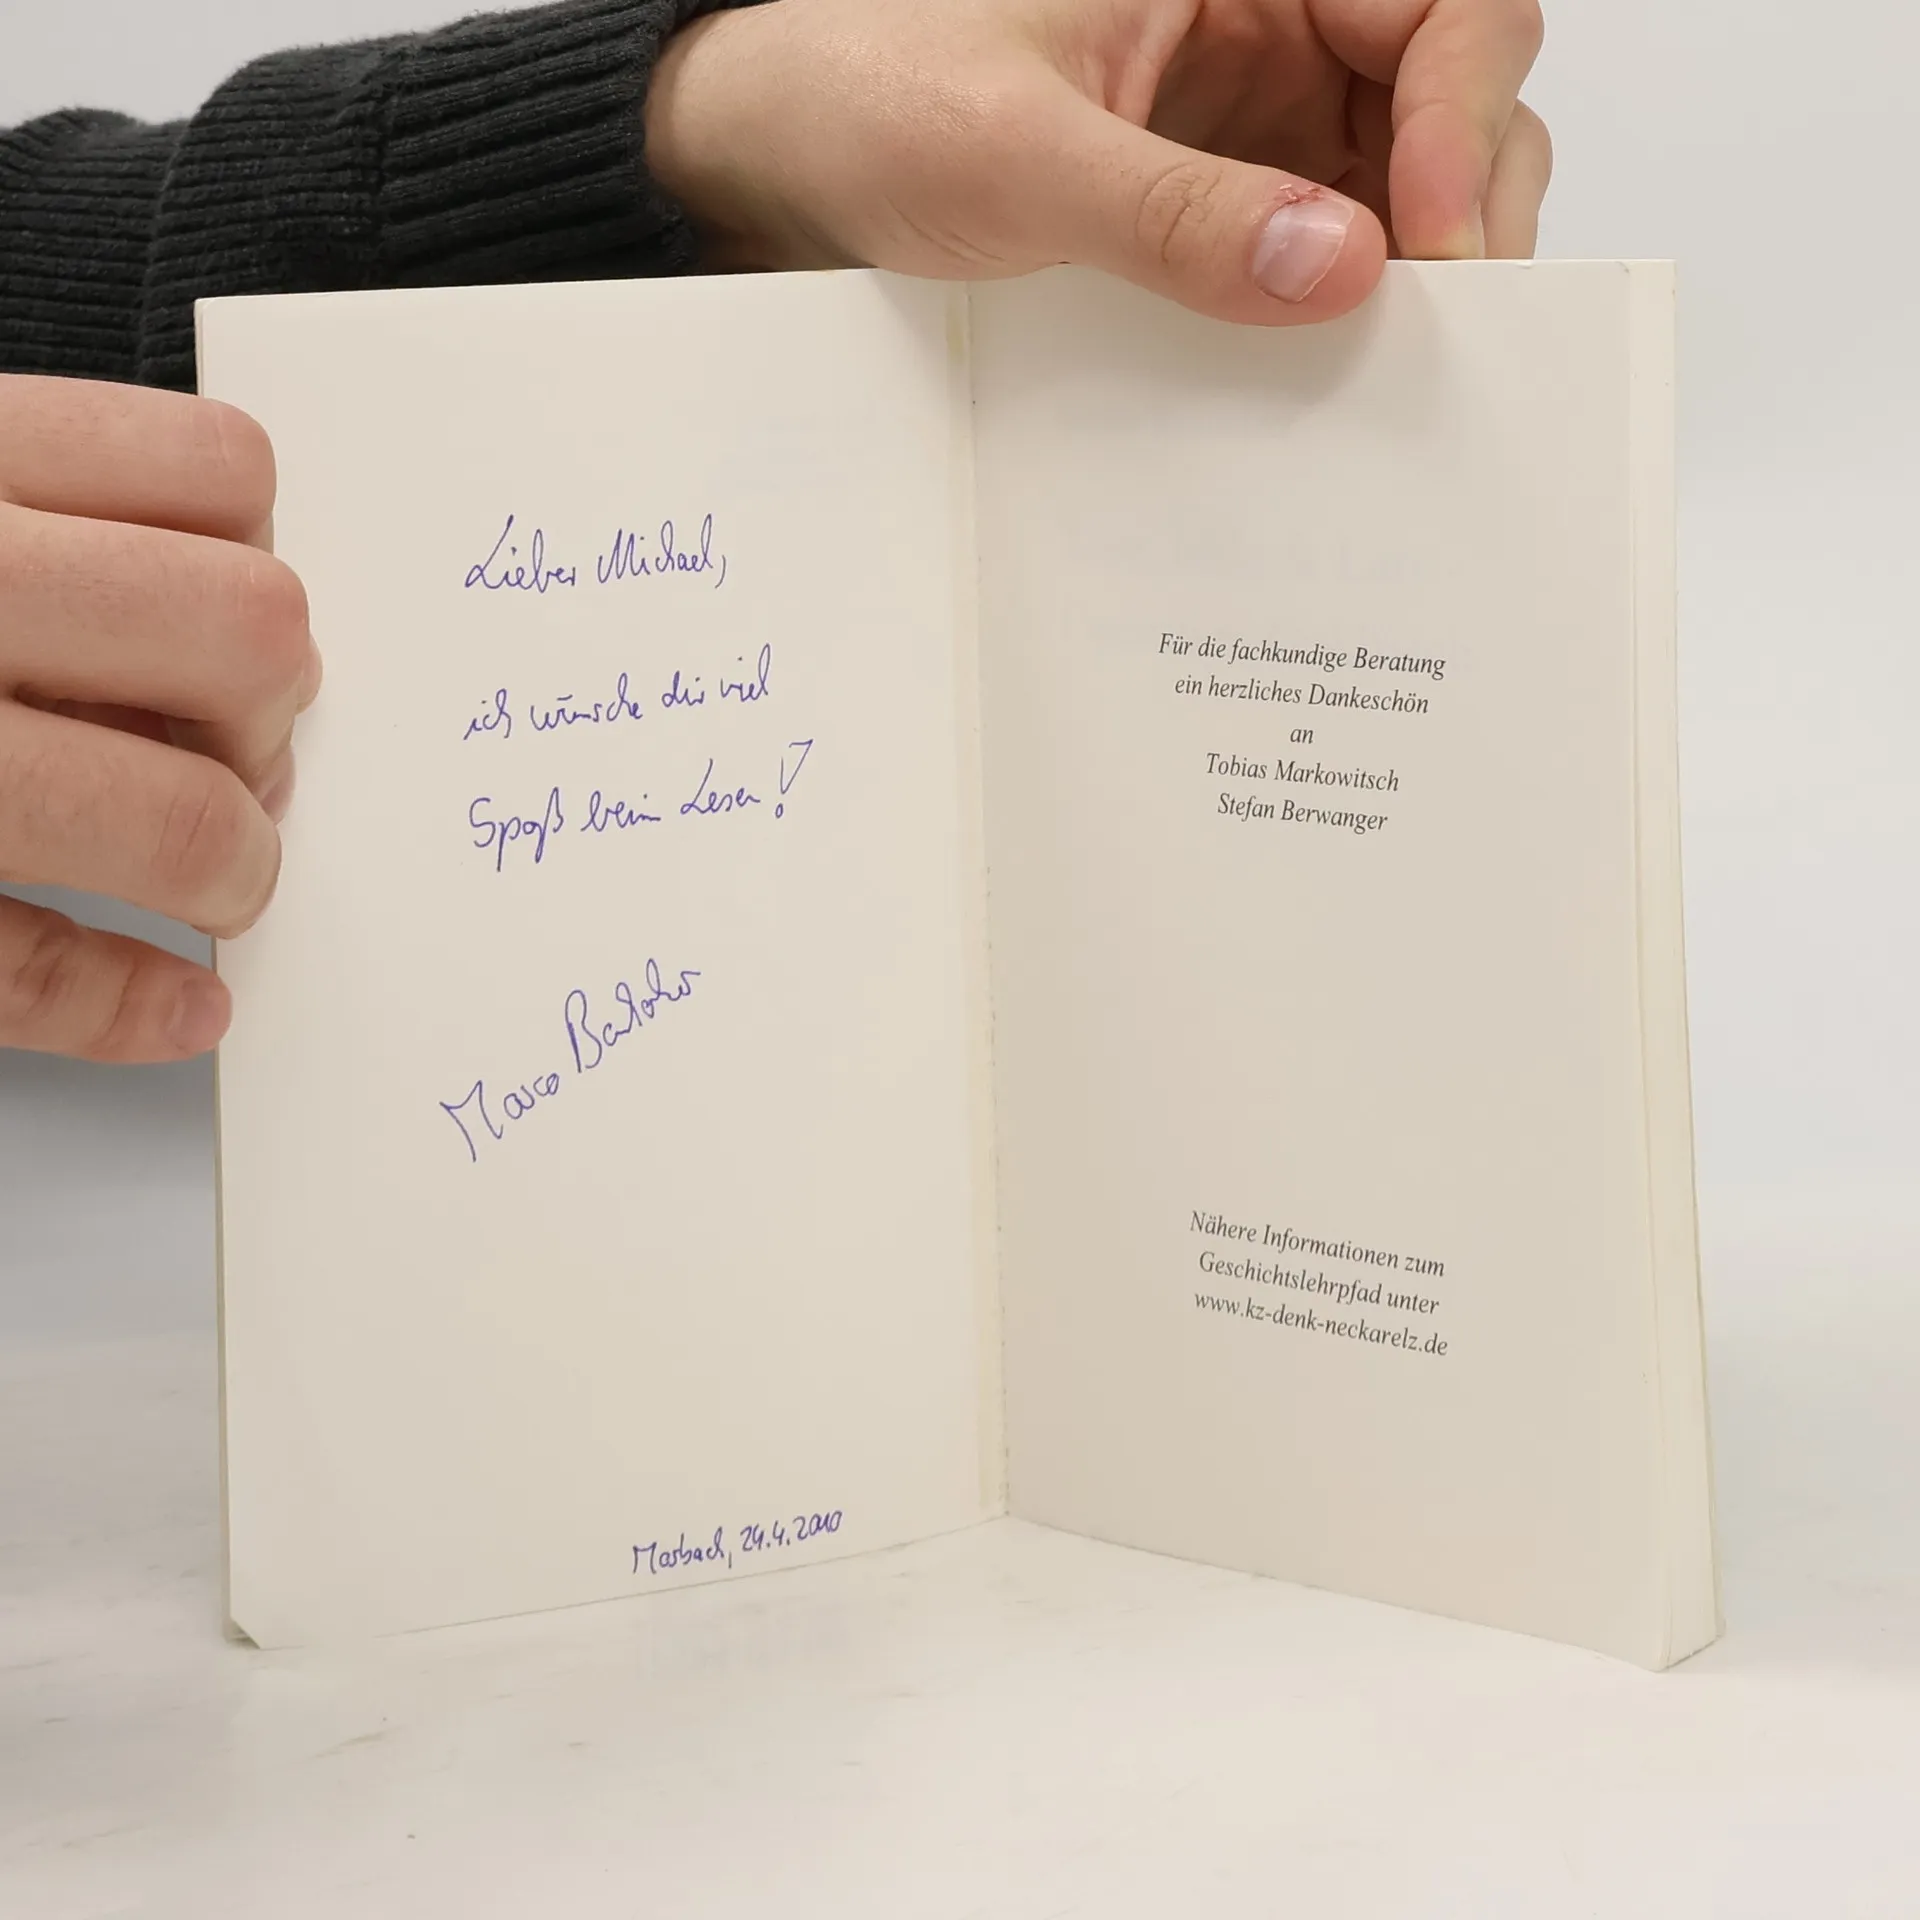 Lieber Michael,
ich wünsche dir viel
Spaß beim Lesen!
Marco
Mosbach, 24.4.2010
Für die fachkundige Beratung
ein herzliches Dankeschön
an
Tobias Markowitsch
Stefan Berwanger
Nähere Informationen zum
Geschichtslehrpfad unter
www.kz-denk-neckarelz.de